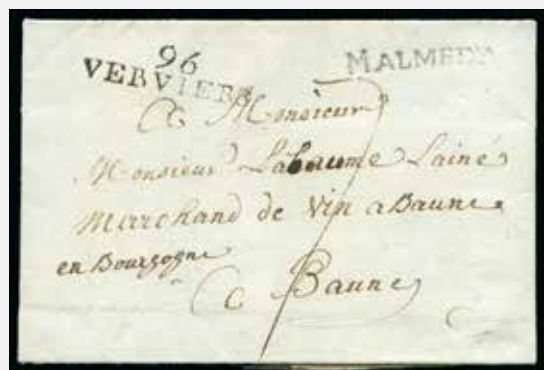 96
VERVIERS
MALMEDY
A Monsieur
Monsieur Labaume Lainé
Marchand de Vin a Baune
en Bourgogne
A Baune